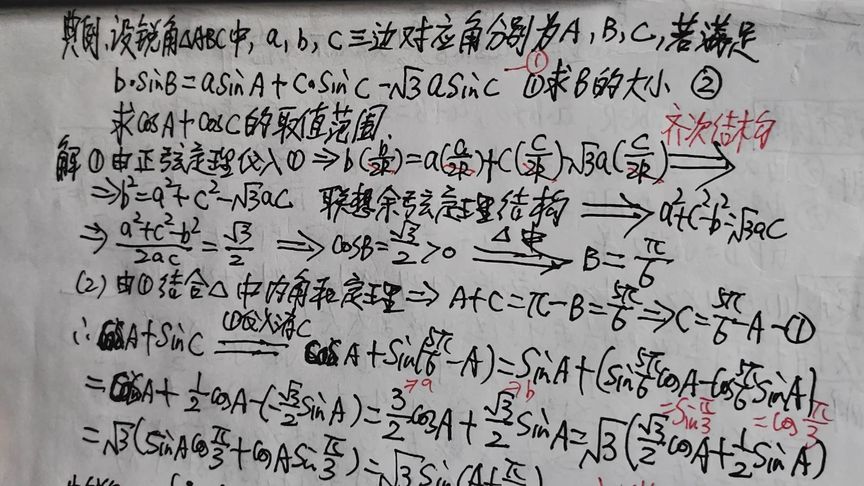 典例.设锐角△ABC中, a, b, c三边对应角分别为A, B, C, 若满足
b·sinB=asinA+c·sinC-√3asinC —① ①求B的大小 ②
求cosA+cosC的取值范围
齐次结构
解①由正弦定理代入①⇒b(b/2R)=a(a/2R)+c(c/2R)-√3a(c/2R)⇒
⇒b²=a²+c²-√3ac 联想余弦定理结构⇒a²+c²-b²=√3ac
⇒(a²+c²-b²)/2ac=√3/2⇒cosB=√3/2>0 △中⇒B=π/6
(2)由①结合△中内角和定理⇒A+C=π-B=5π/6⇒C=5π/6-A-①
∴cosA+sinC ①代入消C cosA+sin(5π/6-A)=sinA+(sin5π/6cosA-cos5π/6sinA)
=cosA+1/2cosA-(-√3/2sinA)=3/2cosA+√3/2sinA=√3(√3/2cosA+1/2sinA)
→a →b =sinπ/3 =cosπ/3
=√3(sinAcosπ/3+cosAsinπ/3)=√3sin(A+π/3)